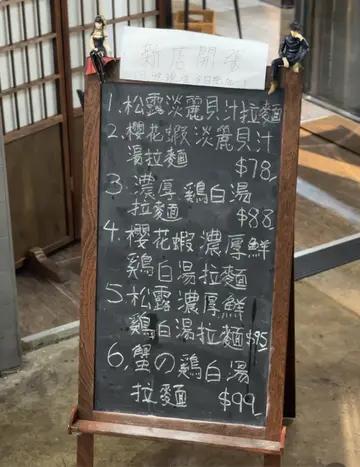 新店開張
1. 松露淡麗貝汁拉麵
2. 櫻花蝦淡麗貝汁
湯拉麵 $78
3. 濃厚鷄白湯
拉麵 $88
4. 櫻花蝦濃厚鮮
鷄白湯拉麵
5. 松露濃厚鮮
鷄白湯拉麵 $95
6. 蟹の鷄白湯
拉麵 $99